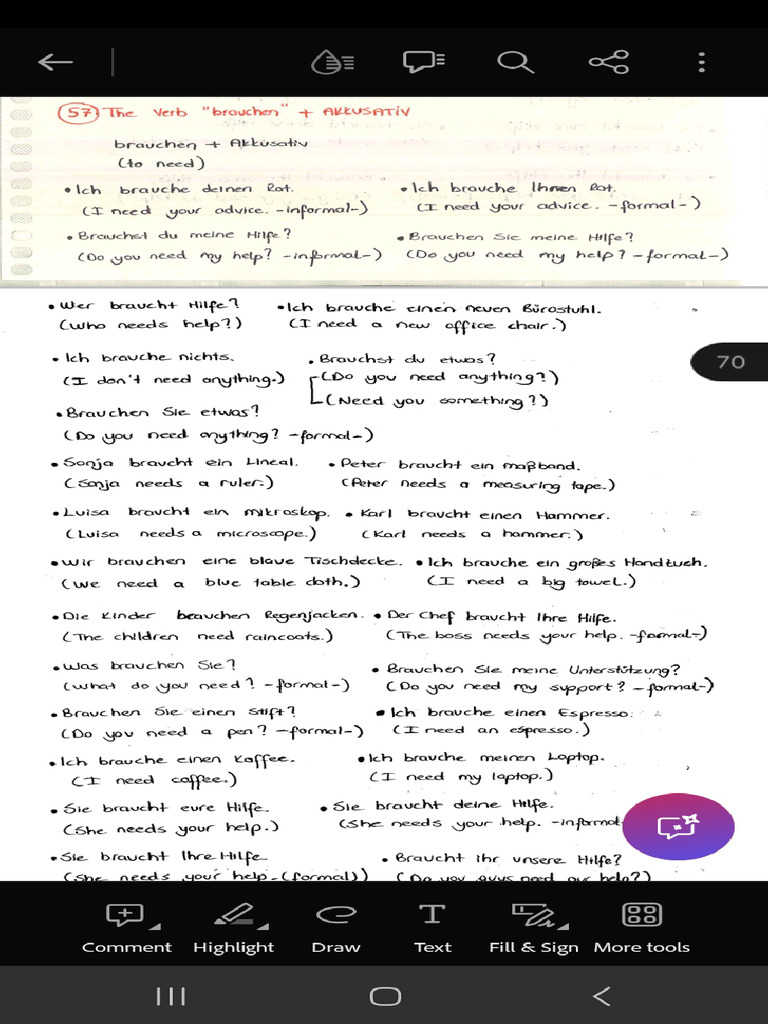 57 The Verb "brauchen" + AKKUSATIV
brauchen + Akkusativ
(to need)
• Ich brauche deinen Rat. • Ich brauche Ihren Rat.
(I need your advice. -informal-) (I need your advice. -formal-)
• Brauchst du meine Hilfe? • Brauchen Sie meine Hilfe?
(Do you need my help? -informal-) (Do you need my help? -formal-)
• Wer braucht Hilfe? • Ich brauche einen neuen Bürostuhl.
(Who needs help?) (I need a new office chair.)
• Ich brauche nichts. • Brauchst du etwas?
(I don't need anything.) (Do you need anything?)
(Need you something?)
70
• Brauchen Sie etwas?
(Do you need anything? -formal-)
• Sonja braucht ein Lineal. • Peter braucht ein maßband.
(Sonja needs a ruler.) (Peter needs a measuring tape.)
• Luisa braucht ein mikroskop. • Karl braucht einen Hammer.
(Luisa needs a microscope.) (Karl needs a hammer.)
• Wir brauchen eine blaue Tischdecke. • Ich brauche ein großes Handtuch.
(We need a blue table cloth.) (I need a big towel.)
• Die Kinder brauchen Regenjacken. • Der Chef braucht Ihre Hilfe.
(The children need raincoats.) (The boss needs your help. -formal-)
• Was brauchen Sie? • Brauchen Sie meine Unterstützung?
(What do you need? -formal-) (Do you need my support? -formal-)
• Brauchen Sie einen Stift? • Ich brauche einen Espresso.
(Do you need a pen? -formal-) (I need an espresso.)
• Ich brauche einen Kaffee. • Ich brauche meinen Laptop.
(I need coffee.) (I need my laptop.)
• Sie braucht eure Hilfe. • Sie braucht deine Hilfe.
(She needs your help.) (She needs your help. -informal-
• Sie braucht Ihre Hilfe. • Braucht ihr unsere Hilfe?
(She needs your help. (formal)) (Do you guys need our help?)
Comment Highlight Draw Text Fill & Sign More tools